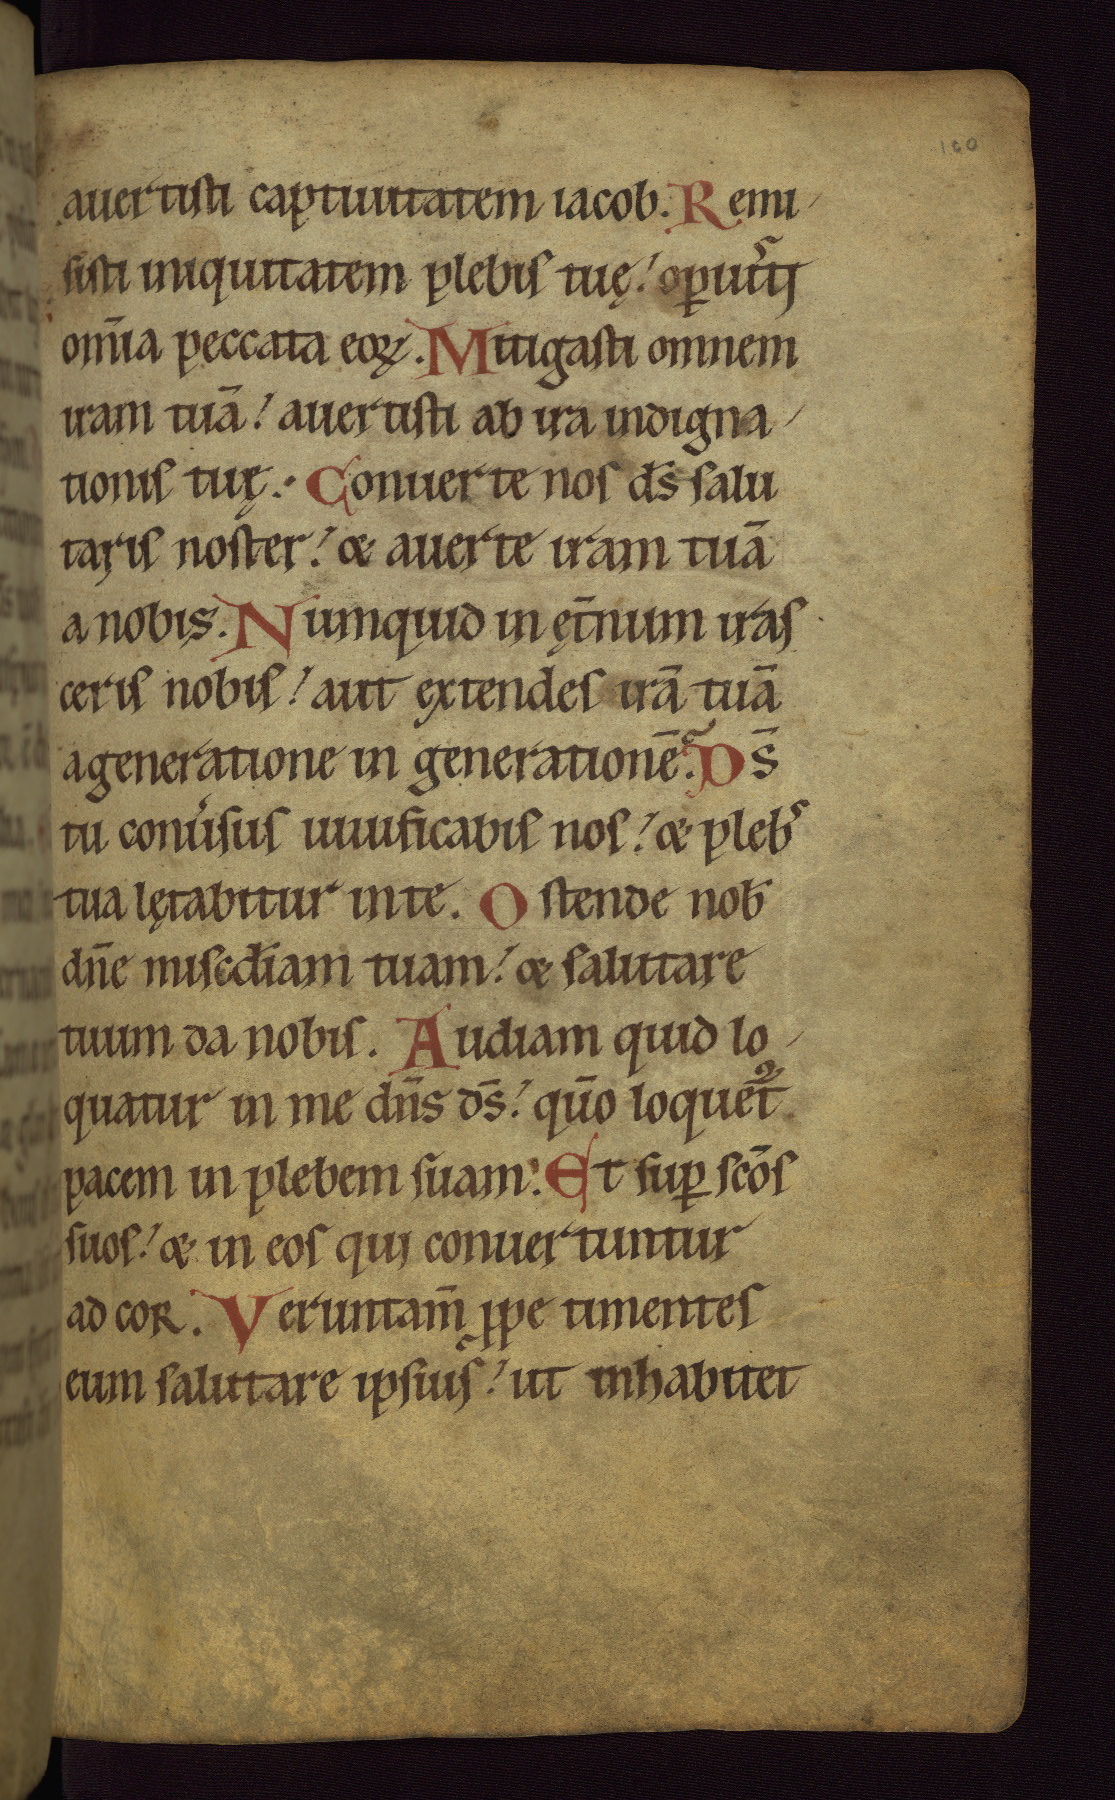 100
auertisti captiuitatem iacob. Remi
sisti iniquitatem plebis tuę! opuisti
om̄ia peccata eoꝝ. Mitigasti omnem
iram tuā! auertisti ab ira indigna
tionis tuę. Conuerte nos ds̄ salu
taris noster! & auerte iram tuā
a nobis. Numquid in ęt̄num iras
ceris nobis! aut extendes irā tuā
a generatione in generationē. Ds̄
tu conu̓sus uiuificabis nos! & plebs
tua lętabitur in te. Ostende nob̄
dn̄e misc̄diam tuam! & salutare
tuum da nobis. Audiam quid lo
quatur in me dn̄s ds̄! qūo loquet̄
pacem in plebem suam. Et suꝑ sc̄os
suos! & in eos qui conuertuntur
ad cor. Veruntam̄ ꝓpe timentes
eum salutare ipsius! ut inhabitet